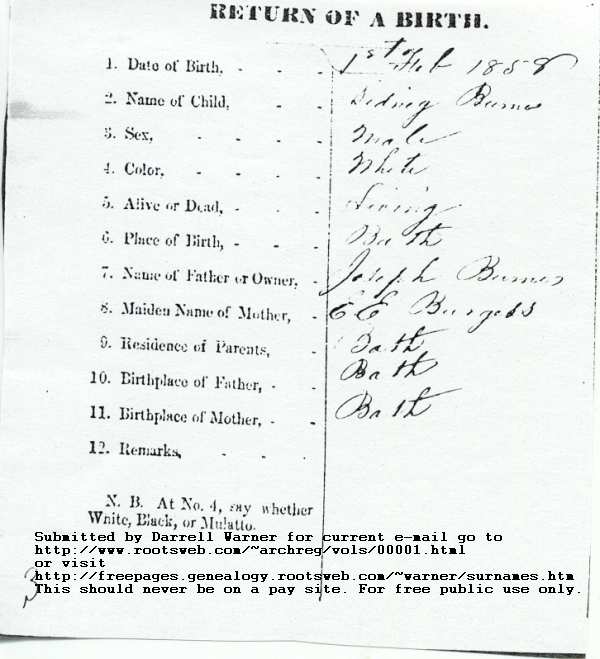 RETURN OF A BIRTH.
1. Date of Birth, - - - 1st Feb 1858
2. Name of Child, - - Burns
3. Sex, - - - - Male
4. Color, - - - - White
5. Alive or Dead, - - - Living
6. Place of Birth, - - - Bath
7. Name of Father or Owner, - Joseph Burns
8. Maiden Name of Mother, - E E Burgess
9. Residence of Parents, - Bath
10. Birthplace of Father, - - Bath
11. Birthplace of Mother, - - Bath
12. Remarks, - - -
N. B. At No. 4, say whether
White, Black, or Mulatto.
Submitted by Darrell Warner for current e-mail go to
http://www.rootsweb.com/~archreg/vols/00001.html
or visit
http://freepages.genealogy.rootsweb.com/~warner/surnames.htm
3
This should never be on a pay site. For free public use only.